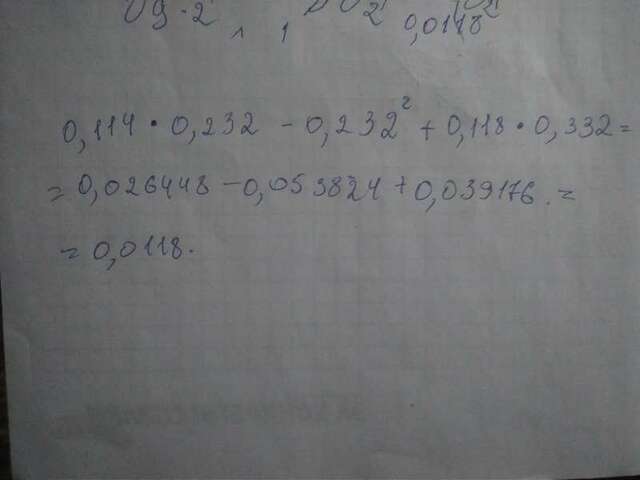 0,0118
0,114 • 0,232 - 0,232² + 0,118 • 0,332 =
= 0,026448 - 0,053824 + 0,039176. =
= 0,0118.